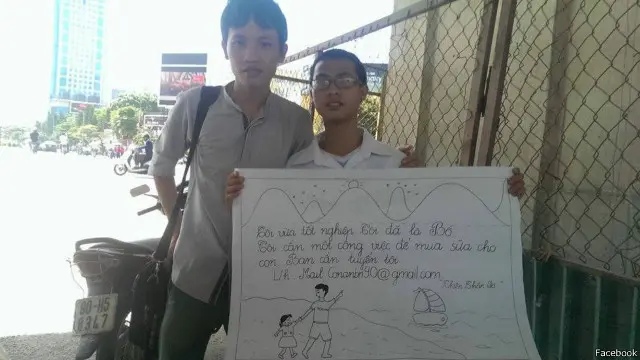 Tôi vừa tốt nghiệp Tôi đã là Bố
Tôi cần một công việc để mua sữa cho
con Bạn cần tuyển tôi
L/h Mail Conanan90@gmail.com
80-H5
8347
Facebook